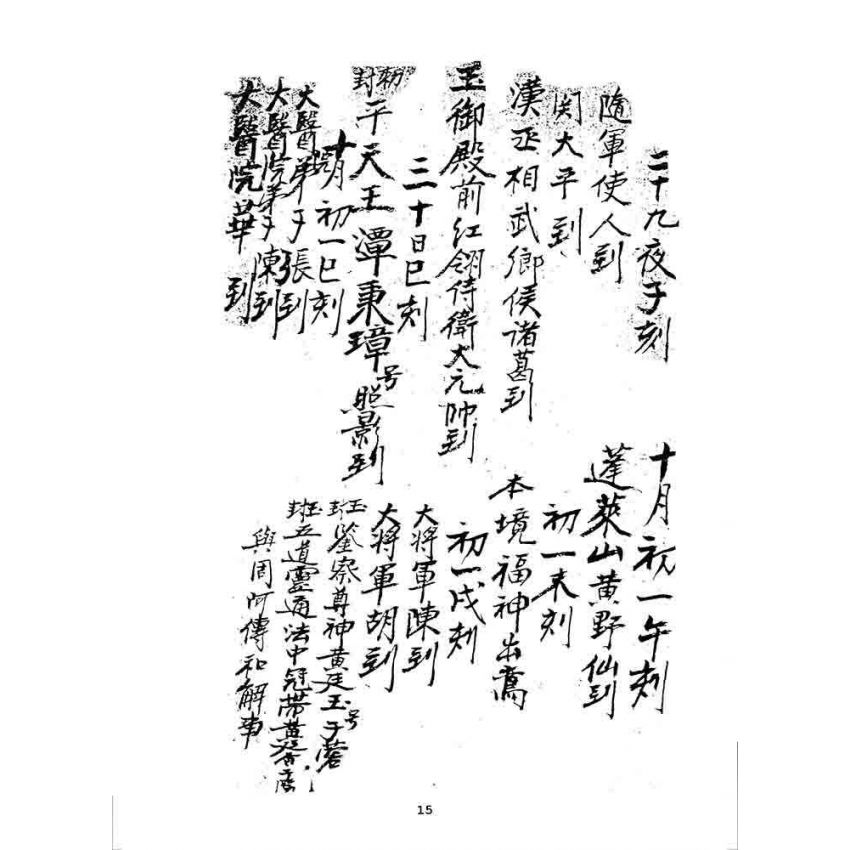 二十九夜子刻
隨軍使人到
関大平到
漢丞相武鄉侯诸葛到
玉御殿前红翎侍衛大元帅到
三十日巳刻
勅封平天王潭秉璋号照影到
十月初一巳刻
大醫弟子張到
大醫院弟子陳到
大醫院華到
十月初一午刻
蓬萊山黄野仙到
初一未刻
本境福神出鸞
初一戌刻
大将軍陳到
大将軍胡到
玉封鉴察尊神黄廷玉号子
玉封五道靈通法中冠带黄
與周阿傳和解事
15